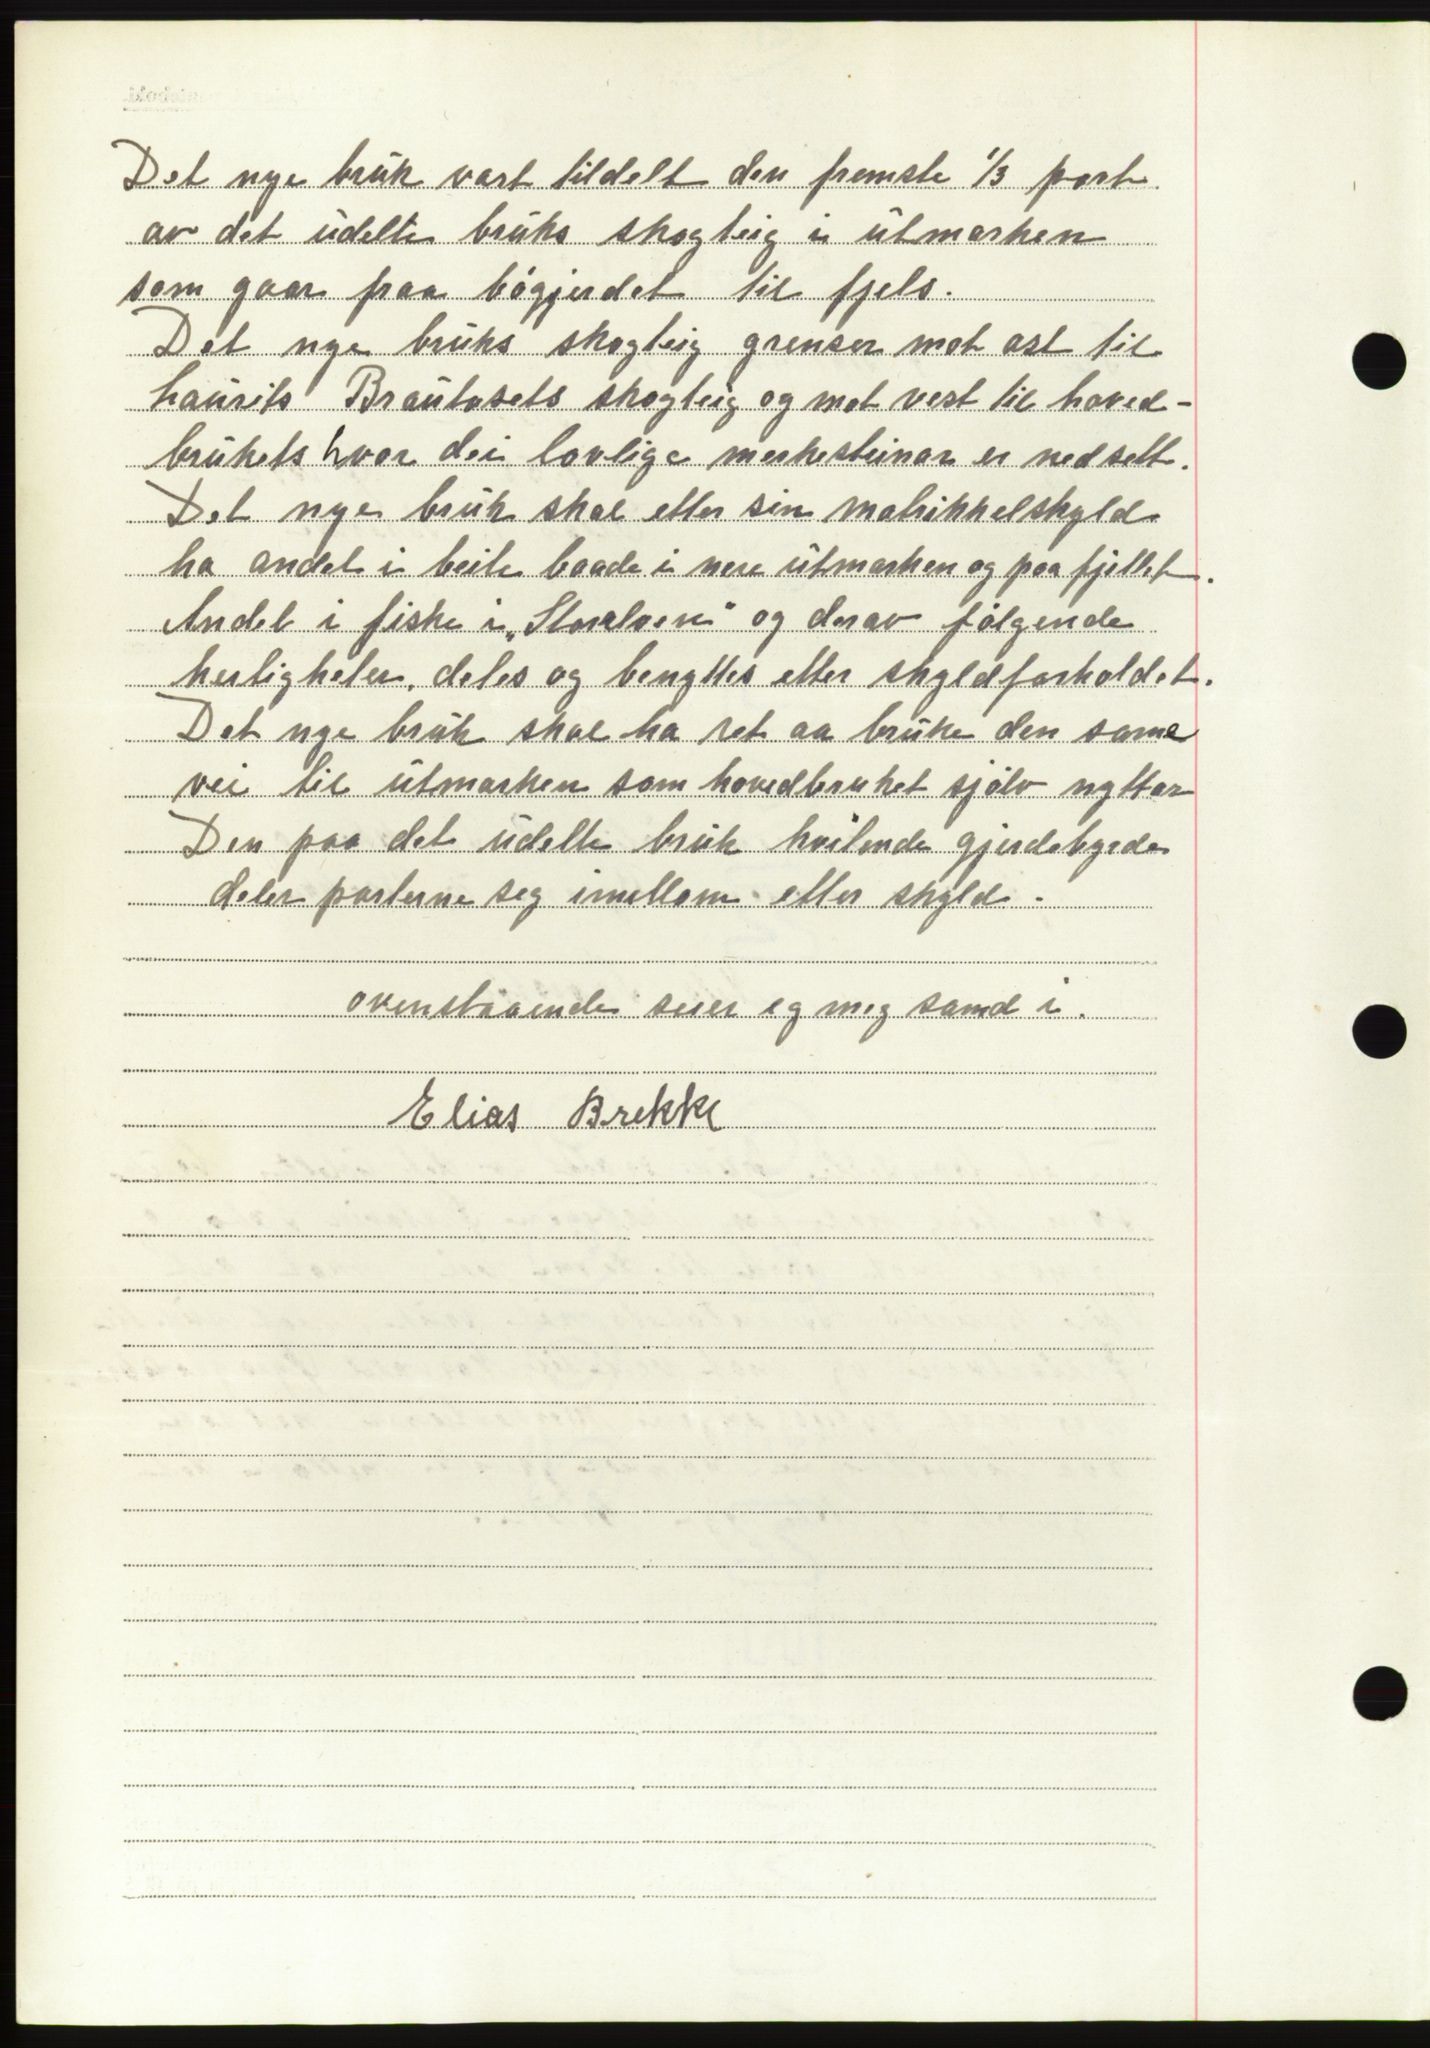 Det nye bruk vart tildelt den fremste 1/3 part
av det udelte bruks skogteig i utmarken
som gaar fraa bögjerdet til fjels.
Det nye bruks skogteig grenser mot ost til
Laurits Brautasets skogteig og mot vest til hoved-
brukets hvor dei lovlige merkesteinar er nedsett.
Det nye bruk skal etter sin matrikkelskyld
ha andel i beite baade i nere utmarken og paa fjellet.
Andel i fiske i „Storelven" og derav følgende
herligheter, deles og benyttes etter skyldforholdet.
Det nye bruk skal ha ret aa bruke den same
vei til utmarken som hovedbruket sjölv nyttar
Den paa det udelte bruk hvilende gjerdebyrde
deler parterne seg imellom etter skyld.
ovenstaaende seier eg meg samd i.
Elias Brekke